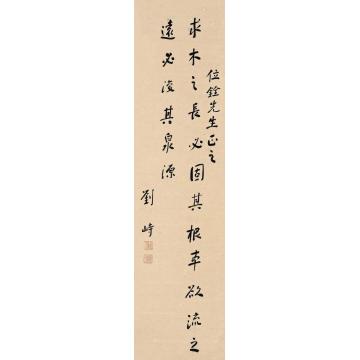 位銓先生正之
求木之長必固其根本欲流之
遠必浚其泉源
劉峙